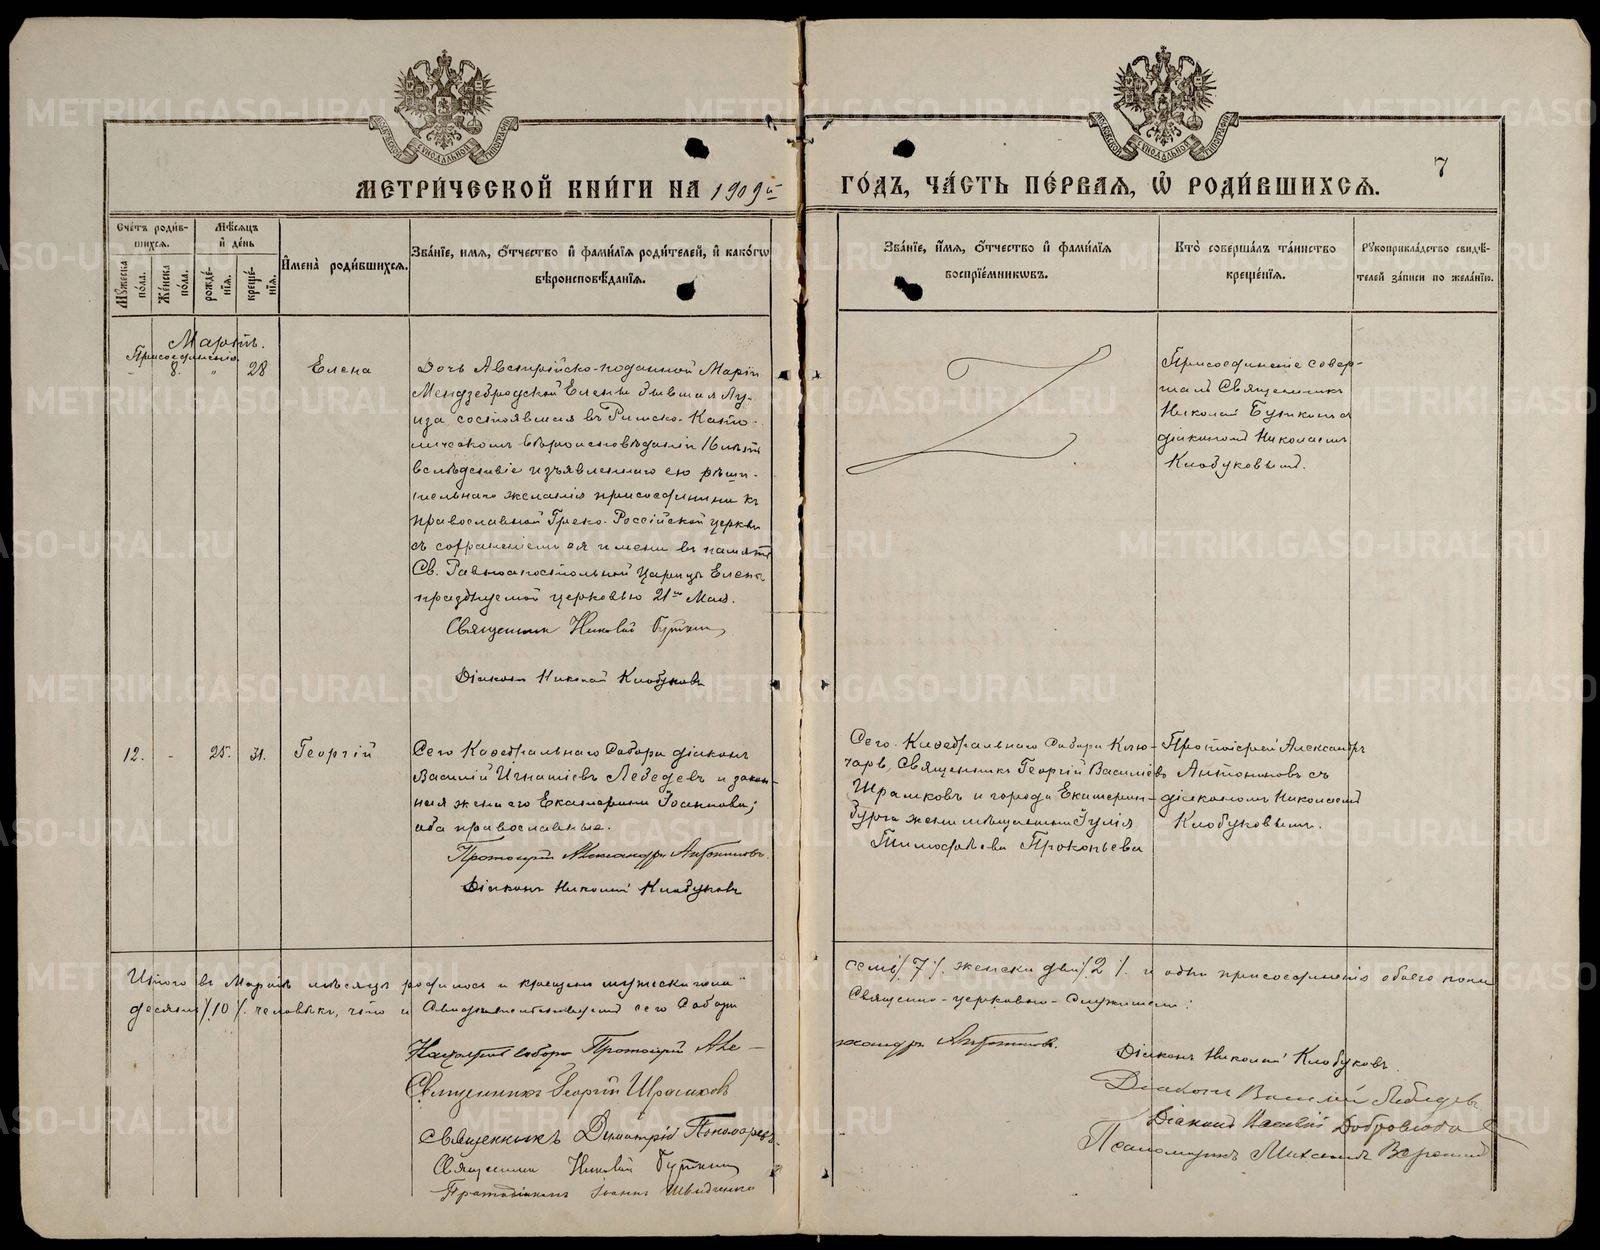 МЕТРИ́ЧЕСКОЙ КНИ́ГИ НА 1909й
ГО́ДЪ, ЧА́СТЬ ПЕ́РВАЯ, Ѡ҆ РОДИ́ВШИХСЯ.
7
Сче́тъ роди́вшихся.
Мѣ́сяцъ и҆ де́нь
Мꙋ́жеска по́ла.
Же́нска по́ла.
рожде́нїя.
креще́нїя.
И҆мена̀ роди́вшихся.
Зва́нїе, имя, о҆́тчество и҆ фами́лїя роди́телей, и҆ како́гѡ вѣроисповѣ́данїя.
Зва́нїе, и҆́мя, о҆́тчество и҆ фами́лїя воспрїе́мникѡвъ.
Кто̀ соверша́лъ та́инство креще́нїя.
Рꙋкоприкла́дство свидѣ́телей за́писи по жела́нїю.
Мартъ.
Присоединенія
8. " 28 Елена
Дочь Австрійско-подданной Маріи
Мендзебродской Елена бывшая Лу-
иза состоявшая въ Римско-Като-
лическомъ вѣроисповѣданіи 16 лѣтъ
вслѣдствіе изъявленнаго ею рѣши-
тельнаго желанія присоединена къ
православной Греко-Россійской церкви
съ сохраненіемъ ея имени въ память
Св. Равноапостольной Царицы Елены
празднуемой церковью 21го Мая.
Священникъ Николай Буткинъ
Діаконъ Николай Клобуковъ
Присоединеніе совер-
шалъ Священникъ
Николай Буткинъ съ
діакономъ Николаемъ
Клобуковымъ.
12. - 25. 31. Георгій
Сего Каѳедральнаго Собора діаконъ
Василій Игнатіевъ Лебедевъ и закон-
ная жена его Екатерина Іоаннова;
оба православные.
Протоіерей Александръ Антониновъ.
Діаконъ Николай Клобуковъ
Сего Каѳедральнаго Собора Клю-
чарь, Священникъ Георгій Василіевъ
Шрамковъ и города Екатерин-
бурга жена мѣщанина Іулія
Тимоѳѣева Прокопьева
Протоіерей Александръ
Антониновъ съ
діакономъ Николаемъ
Клобуковымъ.
Итого въ Мартѣ мѣсяцѣ родилось и крещено мужеска пола
десять /10/ человѣкъ, что и
семь /7/. женска два /2/. и одно присоединеніе обоего пола
Священно-церковно-служители:
Настоятель собора Протоіерей Алек-
сандръ Антониновъ.
Священникъ Георгій Шрамковъ
Священникъ Димитрій Пономаревъ
Священникъ Николай Буткинъ
Протодіаконъ Іоаннъ Швиденко
Діаконъ Николай Клобуковъ.
Діаконъ Василій Лебедевъ
Діаконъ Василій Добролюбовъ
Псаломщикъ Михаилъ
METRIKI.GASO-URAL.RU